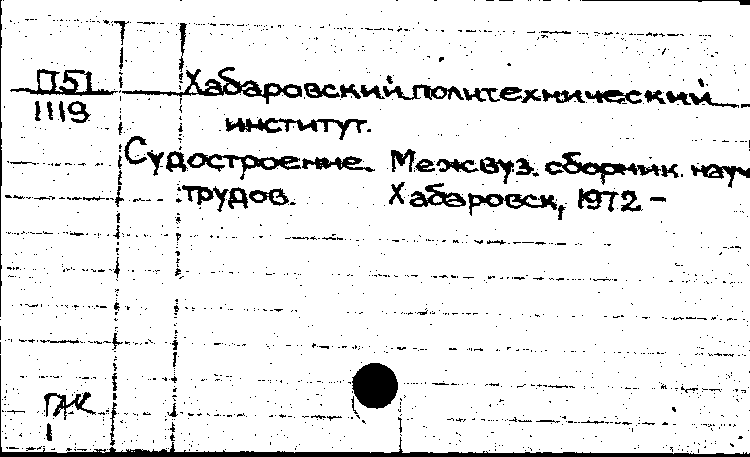 П51 Хабаровский политехнический
1119
институт.
Судостроение. Межвуз. сборник науч
трудов. Хабаровск, 1972 -
ГАК
1